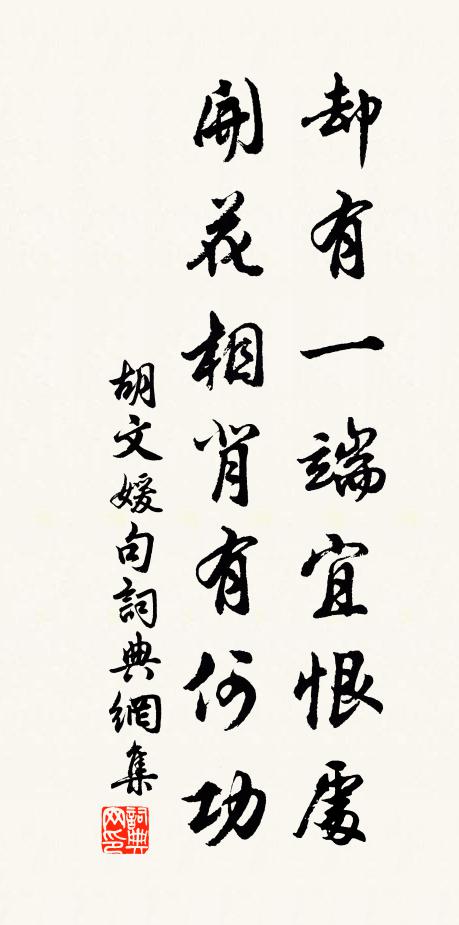 却有一端宜恨處
開花相背有何功
胡文媛句詞典網集
詞典
网印